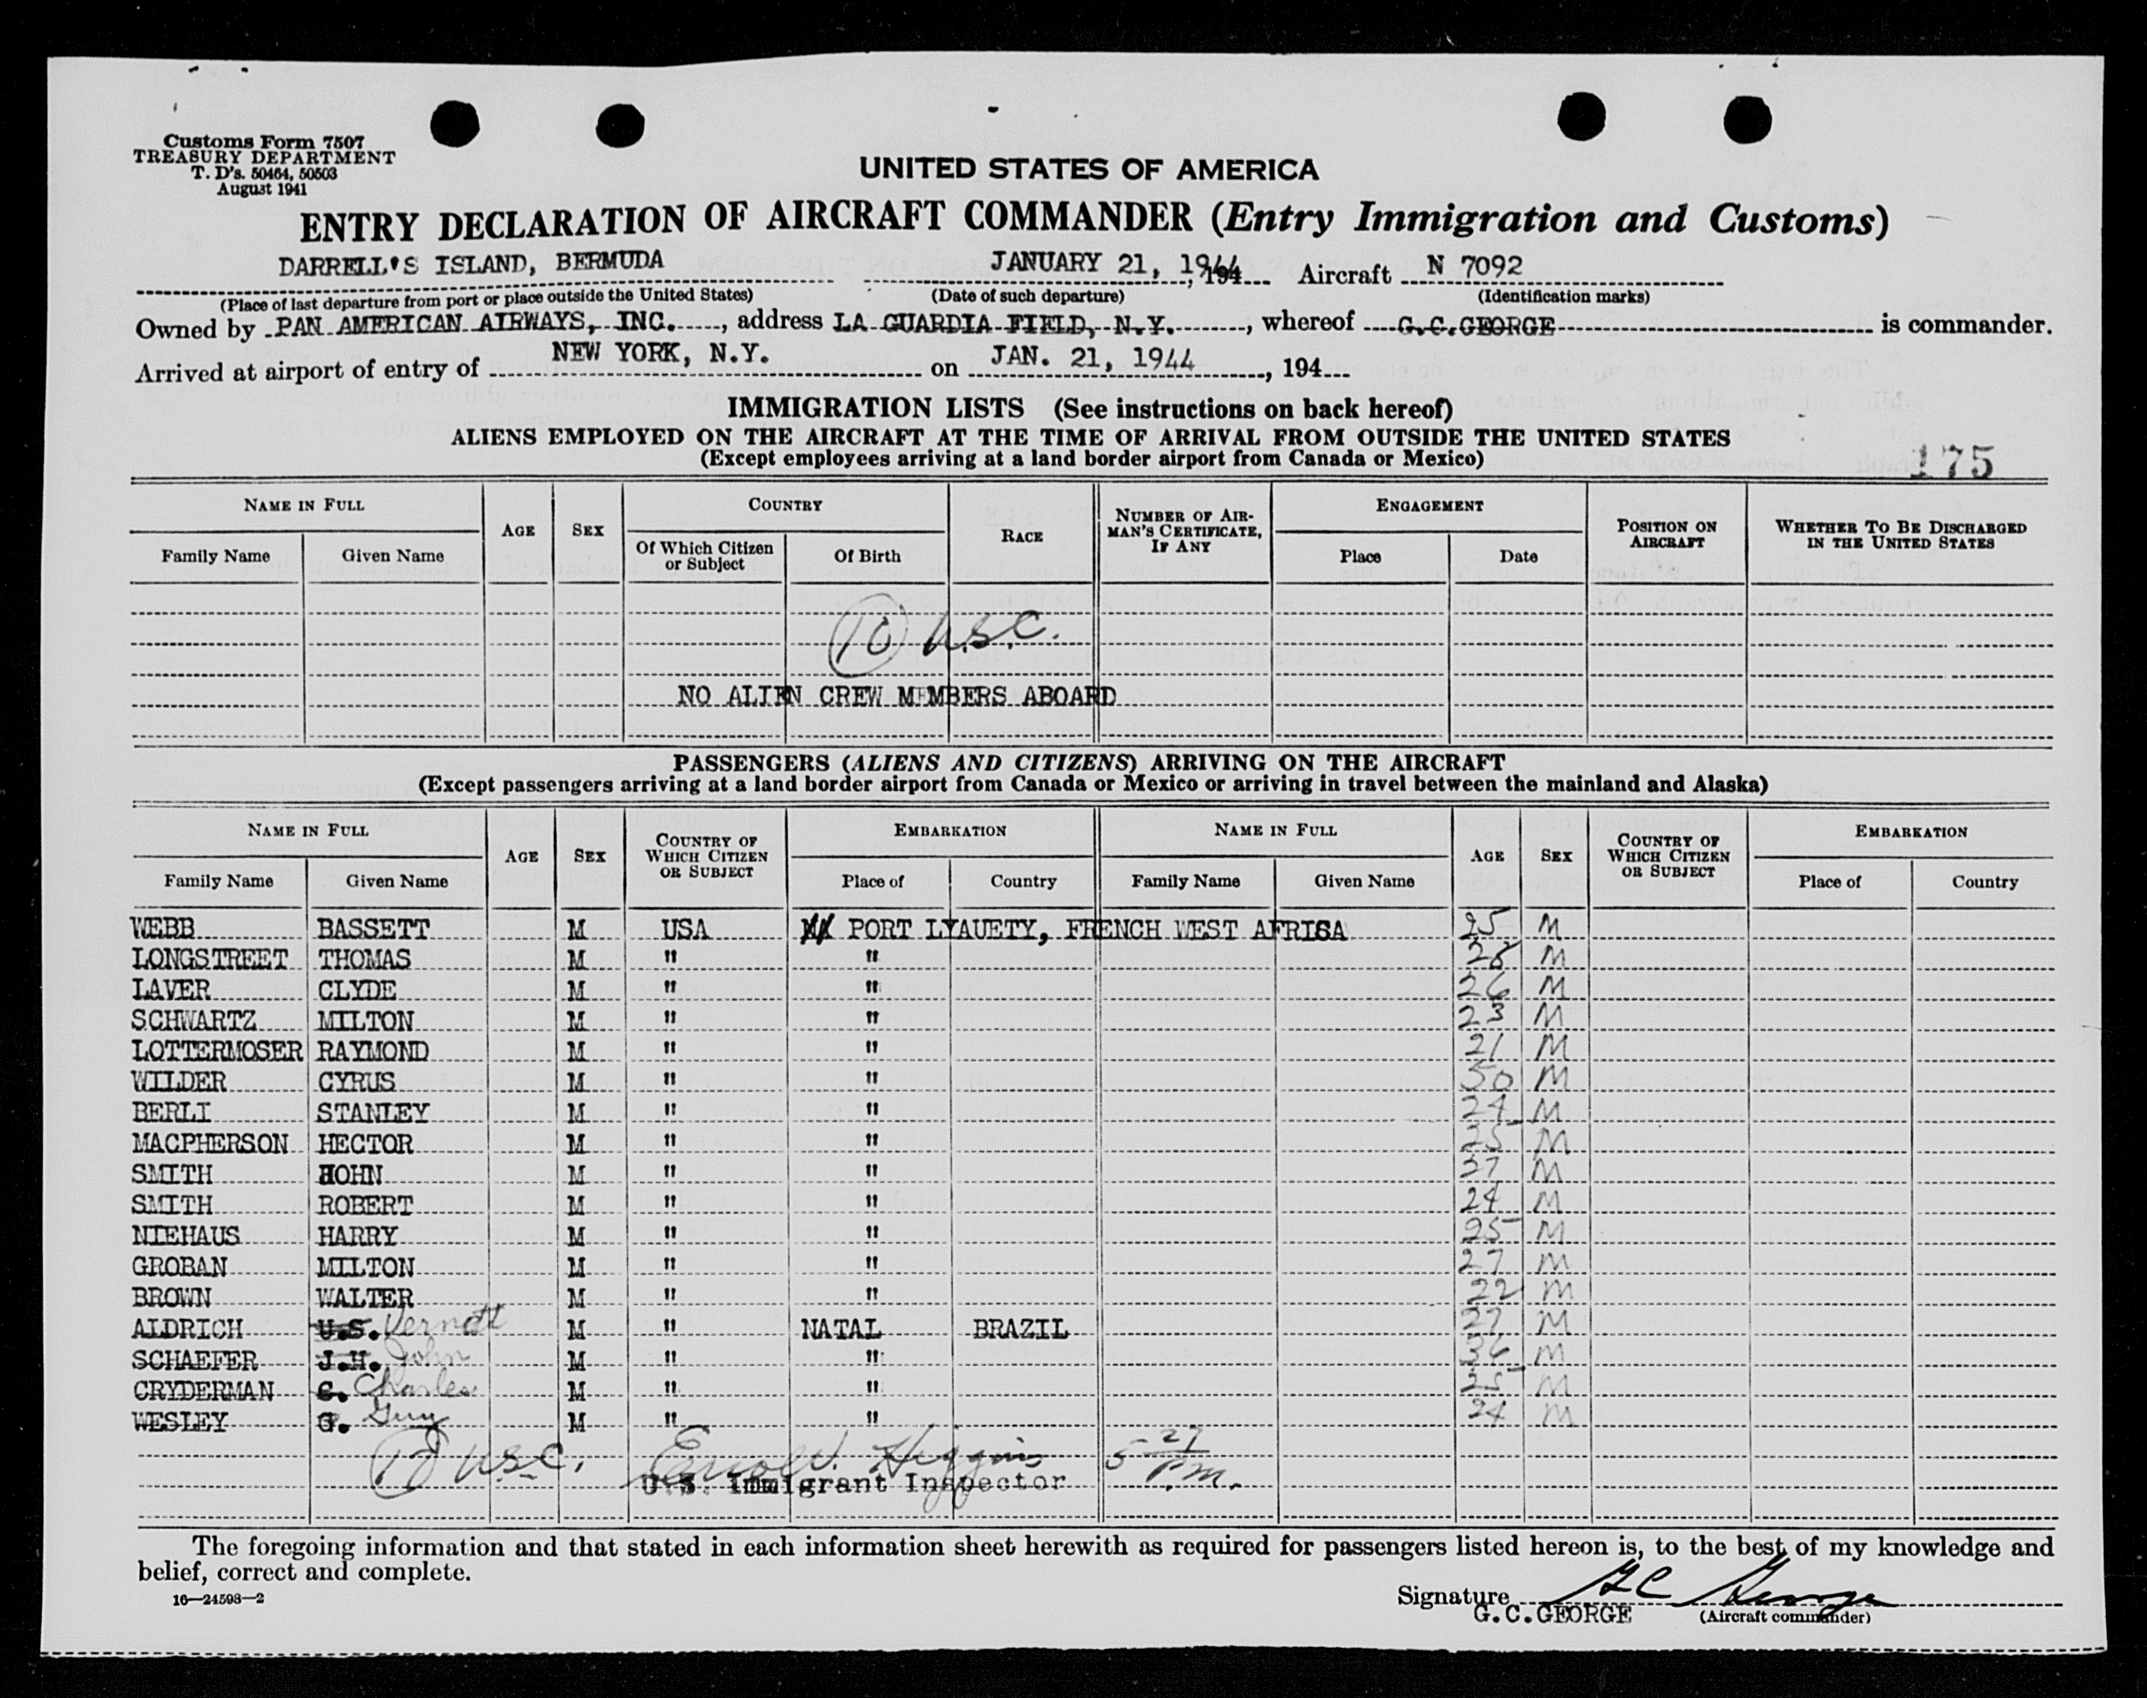 Customs Form 7507
TREASURY DEPARTMENT
T. D's. 50464, 50503
August 1941
UNITED STATES OF AMERICA
ENTRY DECLARATION OF AIRCRAFT COMMANDER (Entry Immigration and Customs)
DARRELL'S ISLAND, BERMUDA JANUARY 21, 1944, 194 Aircraft N 7092
(Place of last departure from port or place outside the United States) (Date of such departure) (Identification marks)
Owned by PAN AMERICAN AIRWAYS, INC., address LA GUARDIA FIELD, N.Y., whereof G.C.GEORGE is commander.
Arrived at airport of entry of NEW YORK, N.Y. on JAN. 21, 1944, 194
IMMIGRATION LISTS (See instructions on back hereof)
ALIENS EMPLOYED ON THE AIRCRAFT AT THE TIME OF ARRIVAL FROM OUTSIDE THE UNITED STATES
(Except employees arriving at a land border airport from Canada or Mexico)
175
NAME IN FULL AGE SEX COUNTRY RACE NUMBER OF AIRMAN'S CERTIFICATE, IF ANY ENGAGEMENT POSITION ON AIRCRAFT WHETHER TO BE DISCHARGED IN THE UNITED STATES
Family Name Given Name Of Which Citizen or Subject Of Birth Place Date
10 U.S.C.
NO ALIEN CREW MEMBERS ABOARD
PASSENGERS (ALIENS AND CITIZENS) ARRIVING ON THE AIRCRAFT
(Except passengers arriving at a land border airport from Canada or Mexico or arriving in travel between the mainland and Alaska)
NAME IN FULL AGE SEX COUNTRY OF WHICH CITIZEN OR SUBJECT EMBARKATION NAME IN FULL AGE SEX COUNTRY OF WHICH CITIZEN OR SUBJECT EMBARKATION
Family Name Given Name Place of Country Family Name Given Name Place of Country
WEBB BASSETT M USA PORT LYAUETY, FRENCH WEST AFRISA 25 M
LONGSTREET THOMAS M " " 28 M
LAVER CLYDE M " " 26 M
SCHWARTZ MILTON M " " 23 M
LOTTERMOSER RAYMOND M " " 21 M
WILDER CYRUS M " " 50 M
BERLI STANLEY M " " 24 M
MACPHERSON HECTOR M " " 25 M
SMITH JOHN M " " 37 M
SMITH ROBERT M " " 24 M
NIEHAUS HARRY M " " 25 M
GROBAN MILTON M " " 27 M
BROWN WALTER M " " 22 M
ALDRICH U.S. M " NATAL BRAZIL 27 M
SCHAEFER J.H. John M " " 36 M
CRYDERMAN C. Charles M " " 25 M
WESLEY G. Guy M " " 24 M
17 USC. Higgins 5 27 P.M.
U.S. Immigrant Inspector
The foregoing information and that stated in each information sheet herewith as required for passengers listed hereon is, to the best of my knowledge and
belief, correct and complete.
16—24598—2
Signature G C George
G.C.GEORGE (Aircraft commander)